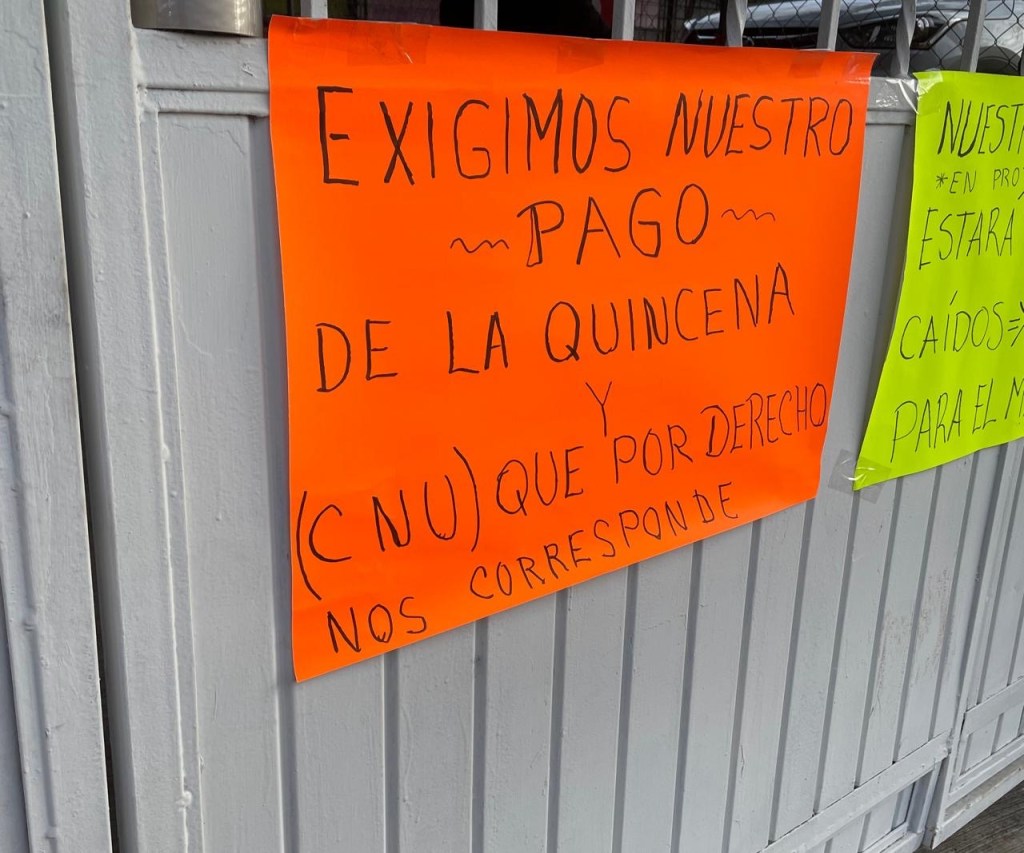 EXIGIMOS NUESTRO
~PAGO~
DE LA QUINCENA
Y
(CNU) QUE POR DERECHO
NOS CORRESPONDE
*EN
ESTARA
CAÍDOS=>
PARA EL